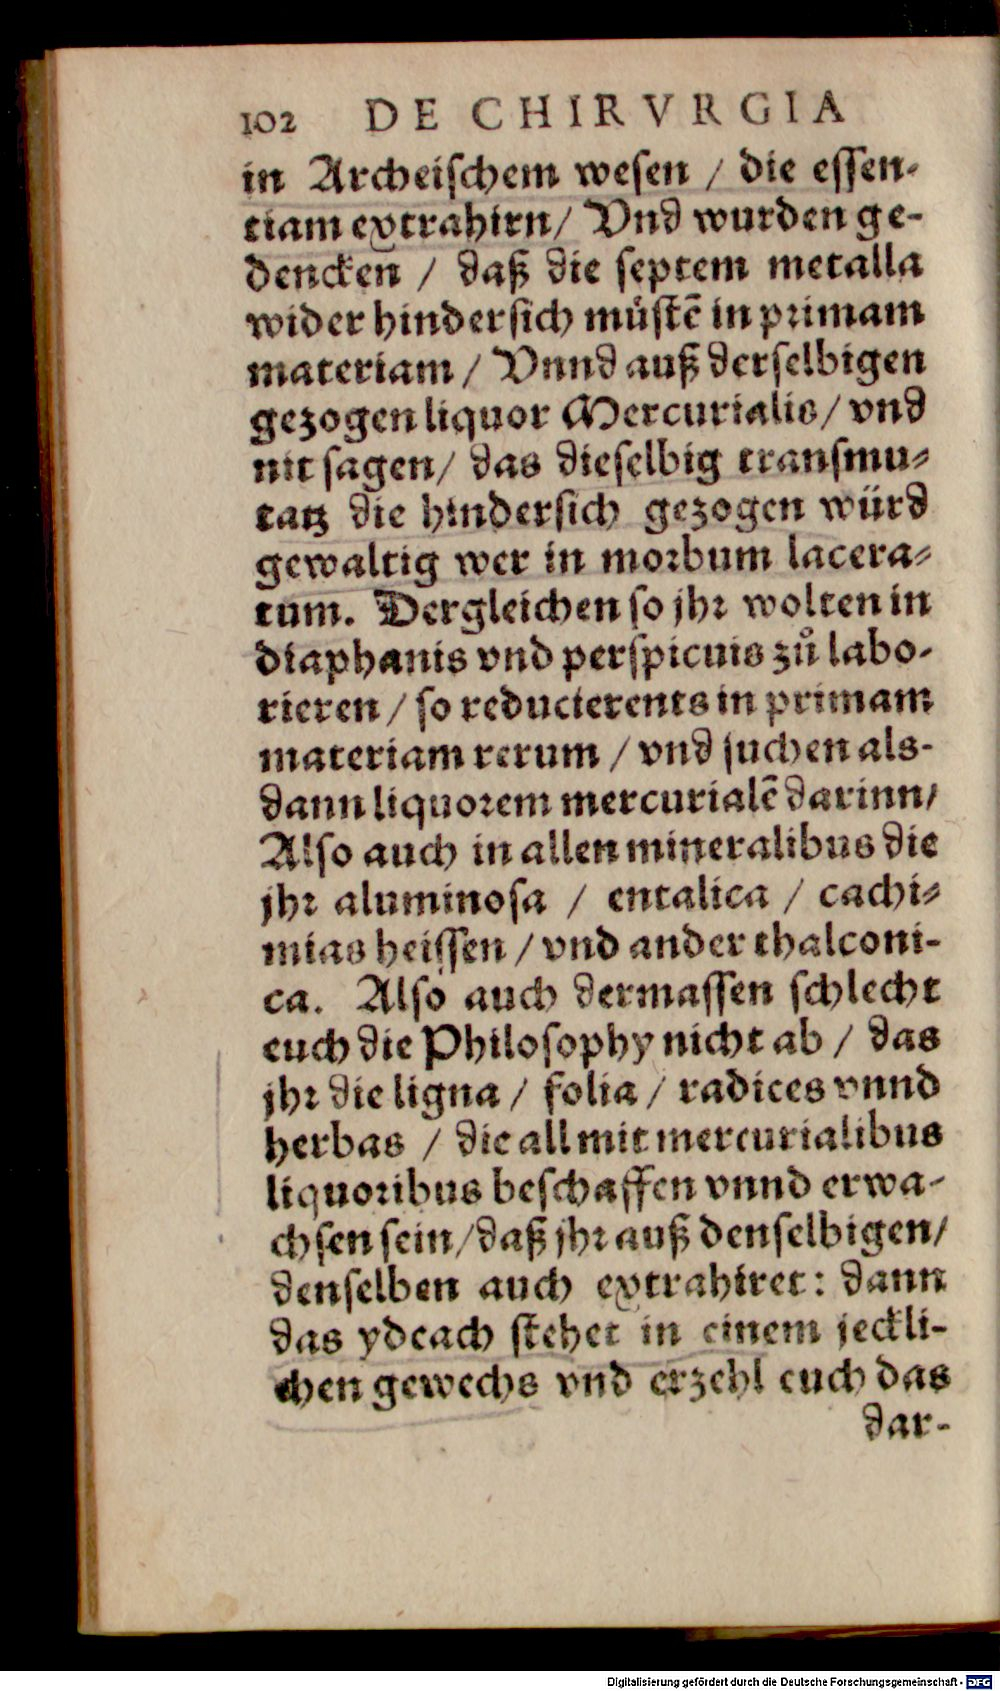 102 DE CHIRVRGIA
in Archeischem wesen / die essen-
tiam extrahirn / Vnd wurden ge-
dencken / daß die septem metalla
wider hindersich můstē in primam
materiam / Vnnd auß derselbigen
gezogen liquor Mercurialis / vnd
nit sagen / das dieselbig transmu-
tatz die hindersich gezogen würd
gewaltig wer in morbum lacera-
tum. Dergleichen so jhr wolten in
diaphanis vnd perspicuis zů labo-
rieren / so reducierents in primam
materiam rerum / vnd suchen als-
dann liquorem mercurialē darinn /
Also auch in allen mineralibus die
jhr aluminosa / entalica / cachi-
mias heissen / vnd ander thalconi-
ca. Also auch dermassen schlecht
euch die Philosophy nicht ab / das
jhr die ligna / folia / radices vnnd
herbas / die all mit mercurialibus
liquoribus beschaffen vnnd erwa-
chsen sein / daß jhr auß denselbigen /
denselben auch extrahiret: dann
das ydeach stehet in einem jeckli-
chen gewechs vnd erzehl euch das
dar-
Digitalisierung gefördert durch die Deutsche Forschungsgemeinschaft - DFG